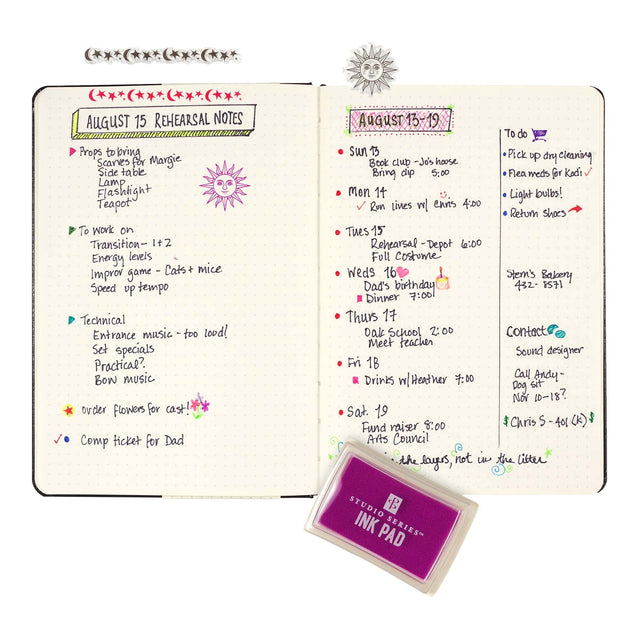 AUGUST 15 REHEARSAL NOTES
Props to bring
Scarves for Margie
Side table
Lamp
Flashlight
Teapot
To work on
Transition - 1+2
Energy levels
Improv game - Cats + mice
Speed up tempo
Technical
Entrance music - too loud!
Set specials
Practical?
Bow music
order flowers for cast!
Comp ticket for Dad
AUGUST 13-19
Sun 13
Book club - Jo's house
Bring dip 5:00
Mon 14
Run lines w/ Chris 4:00
Tues 15
Rehearsal - Depot 6:00
Full Costume
Weds 16
Dad's birthday
Dinner 7:00
Thurs 17
Oak School 2:00
Meet teacher
Fri 18
Drinks w/ Heather 7:00
Sat. 19
Fund raiser 8:00
Arts Council
To do
Pick up dry cleaning
Flea meds for Kodi
Light bulbs!
Return shoes
Stern's Bakery
432-8571
Contact
Sound designer
Call Andy -
Dog sit
Nov 10-18?
$ Chris S - 401(k) $
the layers, not in the litter
STUDIO SERIES™
INK PAD